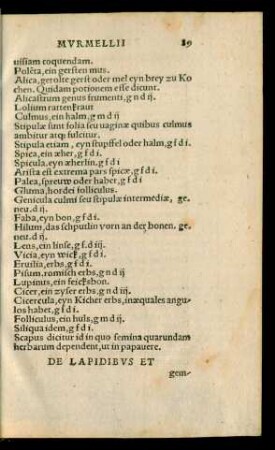 MVRMELLII 89
uisiam coquendam.
Polēta, ein gersten mus.
Alica, gerolte gerst oder mel eyn brey zu Ko
chen. Quidam potionem esse dicunt.
Alicastrum genus frumenti, g n d ij.
Lolium ratten kraut
Culmus, ein halm, g m d ij
Stipulæ sunt folia seu uaginæ quibus culmus
ambitur atq; fulcitur.
Stipula etiam, eyn stupffel oder halm, g f d i.
Spica, ein æher, g f d i.
Spicula, eyn æherlin. g f d i
Arista est extrema pars spicæ, g f d i.
Palea, spreuw oder habet, g f d i
Gluma, hordei folliculus.
Genicula culmi seu stipulæ intermediæ, ge,
neu. d ij.
Faba, eyn bon, g f d i.
Hilum, das schputlin vorn an der bonen. ge,
neu. d ij.
Lens, ein linse, g f. d ij.
Vicia, eyn wick, g f d i.
Eruilia, erbs, g f d i.
Pisum, romisch erbs, g n d ij
Lupinus, ein feicksbon.
Cicer, ein zyser erbs, g n d iij.
Cicercula, eyn Kicher erbs, inæquales angu
los habet, g f d i.
Folliculus, ein huls, g m d ij
Siliqua idem, g f d i.
Scapus dicitur id in quo semina quarundam
herbarum dependent, ut in papauere.
DE LAPIDIBVS ET
gem-